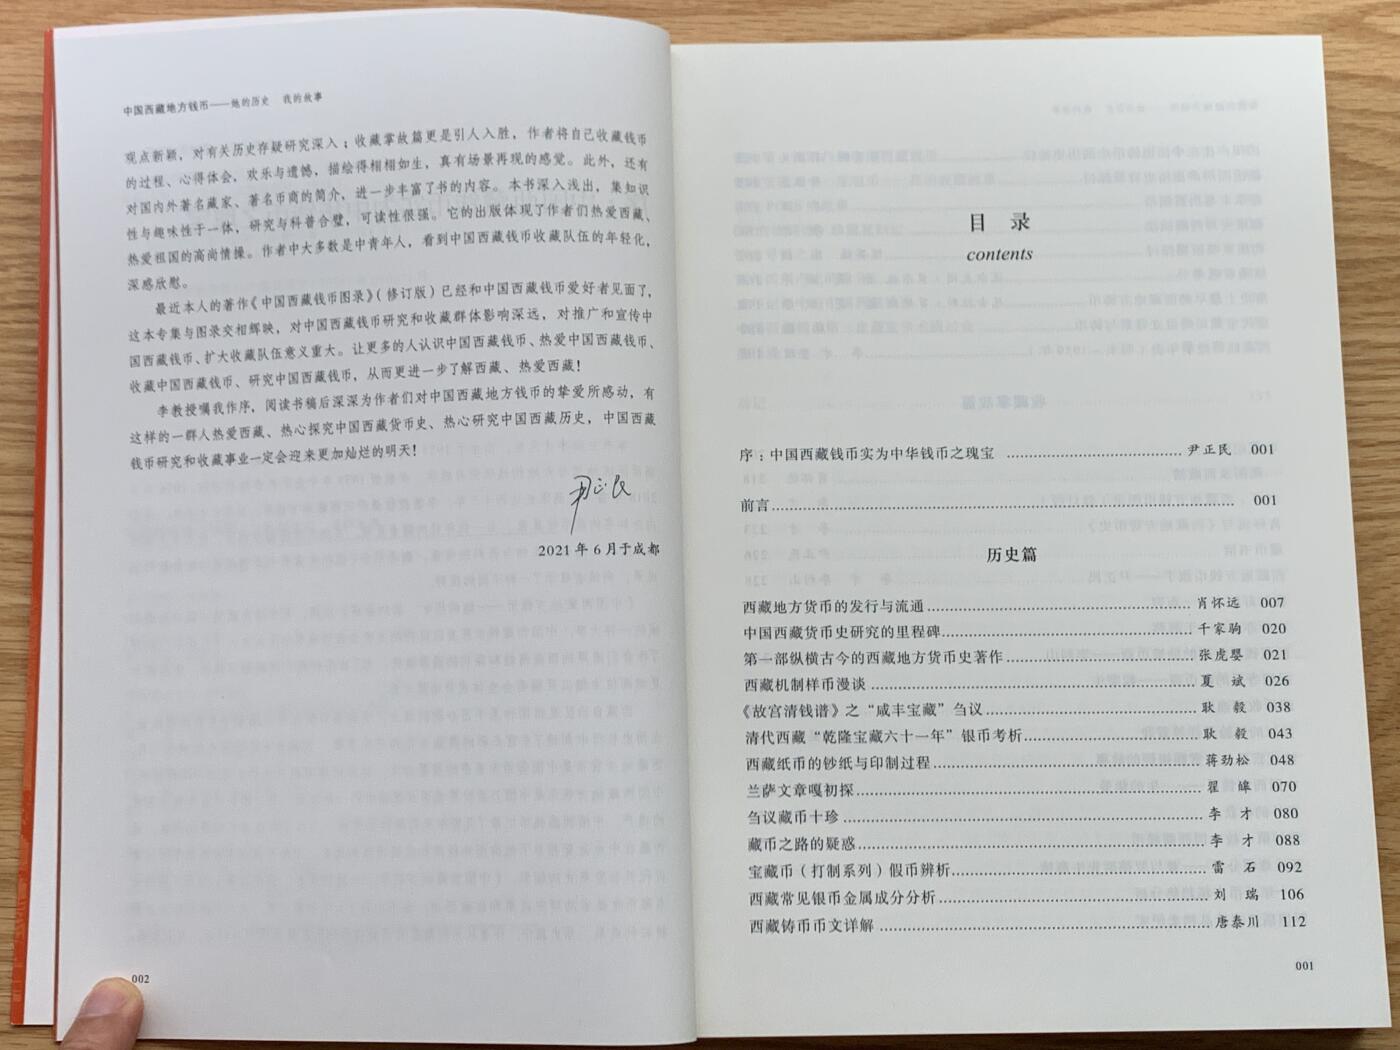 中国西藏地方钱币——她的历史　我的故事
观点新颖，对有关历史存疑研究深入；收藏掌故篇更是引人入胜，作者将自己收藏钱币
的过程、心得体会，欢乐与遗憾，描绘得栩栩如生，真有场景再现的感觉。此外，还有
对国内外著名藏家、著名币商的简介，进一步丰富了书的内容。本书深入浅出，集知识
性与趣味性于一体，研究与科普合璧，可读性很强。它的出版体现了作者们热爱西藏、
热爱祖国的高尚情操。作者中大多数是中青年人，看到中国西藏钱币收藏队伍的年轻化，
深感欣慰。
最近本人的著作《中国西藏钱币图录》（修订版）已经和中国西藏钱币爱好者见面了，
这本专集与图录交相辉映，对中国西藏钱币研究和收藏群体影响深远，对推广和宣传中
国西藏钱币、扩大收藏队伍意义重大。让更多的人认识中国西藏钱币、热爱中国西藏钱币、
收藏中国西藏钱币、研究中国西藏钱币，从而更进一步了解西藏、热爱西藏！
李教授嘱我作序，阅读书稿后深深为作者们对中国西藏地方钱币的挚爱所感动，有
这样的一群人热爱西藏、热心探究中国西藏货币史、热心研究中国西藏历史，中国西藏
钱币研究和收藏事业一定会迎来更加灿烂的明天！
尹正民
2021 年 6 月于成都
002
目 录
contents
序：中国西藏钱币实为中华钱币之瑰宝 …… 尹正民 001
前言 …… 001
历史篇
西藏地方货币的发行与流通 …… 肖怀远 007
中国西藏货币史研究的里程碑 …… 千家驹 020
第一部纵横古今的西藏地方货币史著作 …… 张虎婴 021
西藏机制样币漫谈 …… 夏 斌 026
《故宫清钱谱》之“咸丰宝藏”刍议 …… 耿 毅 038
清代西藏“乾隆宝藏六十一年”银币考析 …… 耿 毅 043
西藏纸币的钞纸与印制过程 …… 蒋劲松 048
兰萨文章嘎初探 …… 翟 皞 070
刍议藏币十珍 …… 李 才 080
藏币之路的疑惑 …… 李 才 088
宝藏币（打制系列）假币辨析 …… 雷 石 092
西藏常见银币金属成分分析 …… 刘 瑞 106
西藏铸币币文详解 …… 唐泰川 112
001